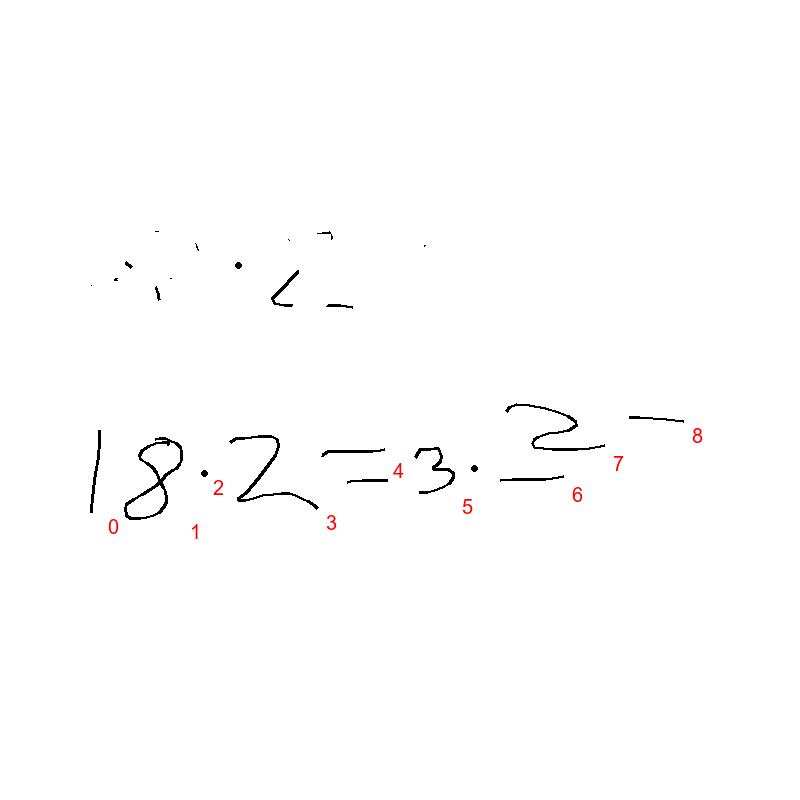 18·2=3·2
0 1 2 3 4 5 6 7 8